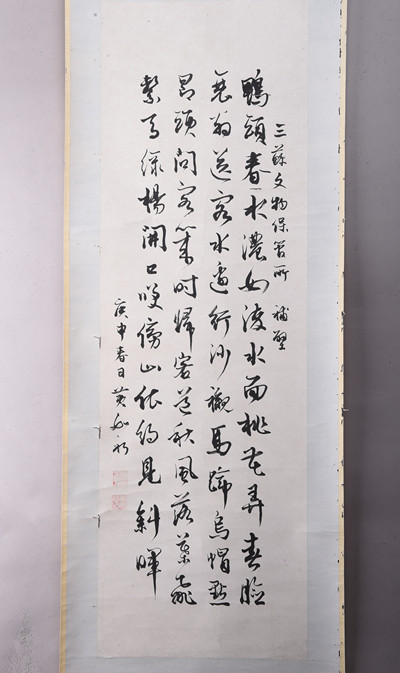 三蘇文物保管所 補壁
鴨頭春水濃如染水面桃花弄春臉
衰翁送客水邊行沙襯馬蹄烏帽點
昂頭問客幾時歸客道秋風落葉飛
繫馬綠楊開口笑傍山依約見斜暉
庚申春日黄